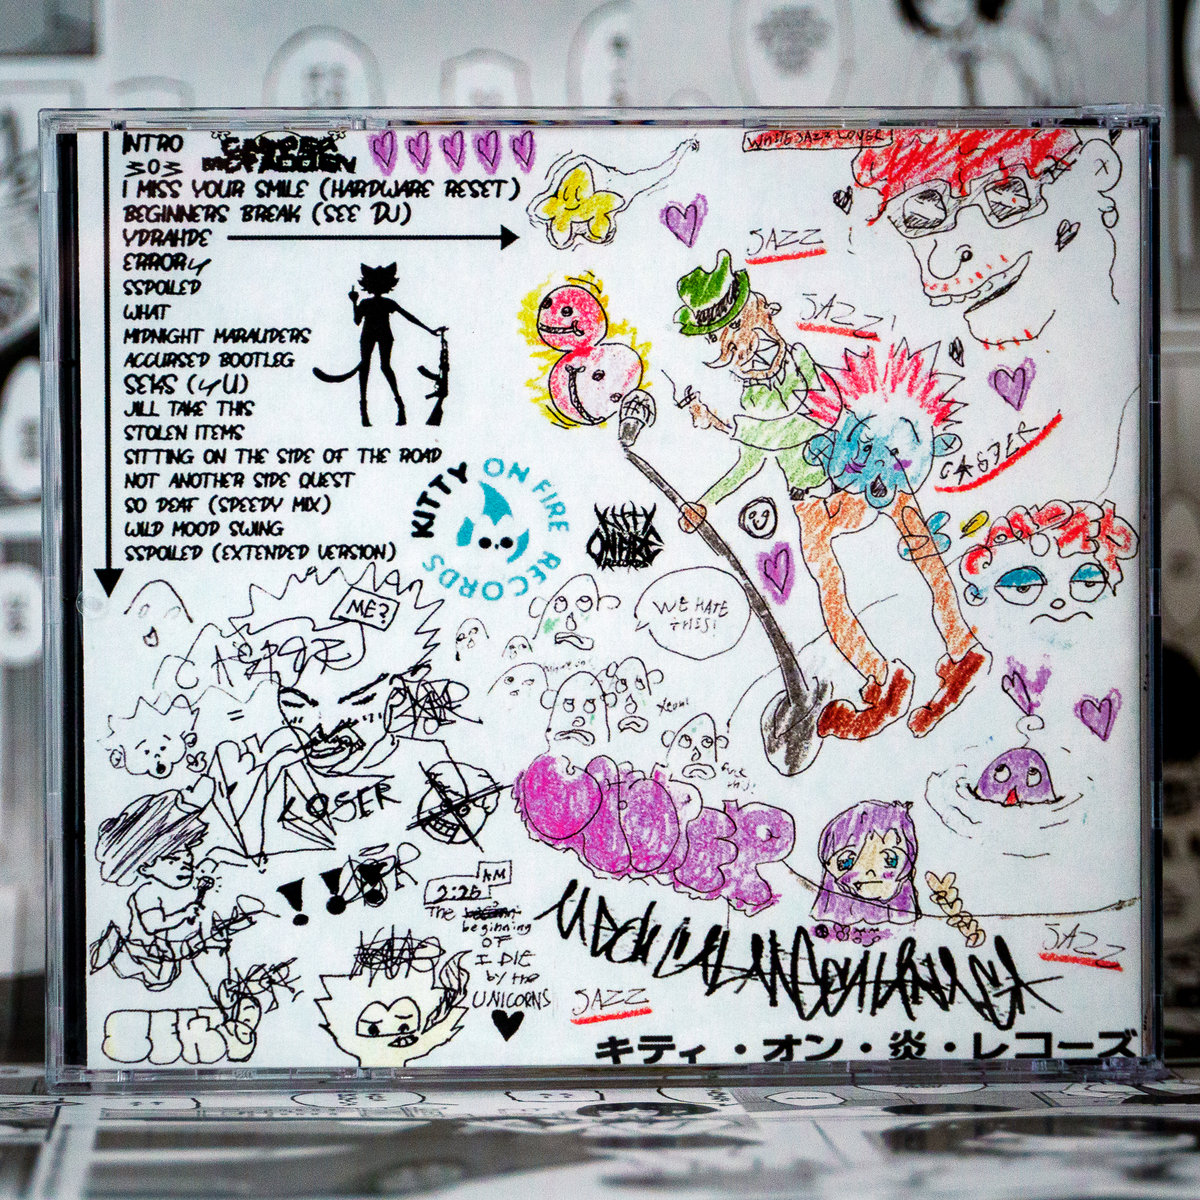 INTRO
303
CASPER
MCFADDEN
I MISS YOUR SMILE (HARDWARE RESET)
BEGINNERS BREAK (SEE DJ)
YDRAHDE
ERRORY
SSPOILED
WHAT
MIDNIGHT MARAUDERS
ACCURSED BOOTLEG
SEKS (4U)
JILL TAKE THIS
STOLEN ITEMS
SITTING ON THE SIDE OF THE ROAD
NOT ANOTHER SIDE QUEST
SO DEAF (SPEEDY MIX)
WILD MOOD SWING
SSPOILED (EXTENDED VERSION)
KITTY ON FIRE RECORDS
KITTY
ON FIRE
RECORDS
JAZZ
JAZZ!
CASPER
WE HATE
THIS!
ME?
LOSER
2:25 AM
The
beginning
OF
I DIE
by the
UNICORNS
JAZZ
JAZZ
キティ・オン・炎・レコーズ